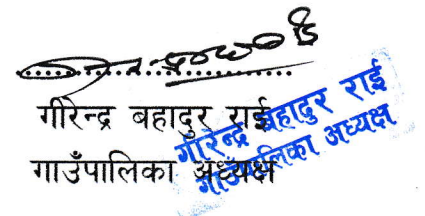 गीरेन्द्र बहादुर राई
गाउँपालिका अध्यक्ष
गीरेन्द्र बहादुर राई
गाउँपालिका अध्यक्ष